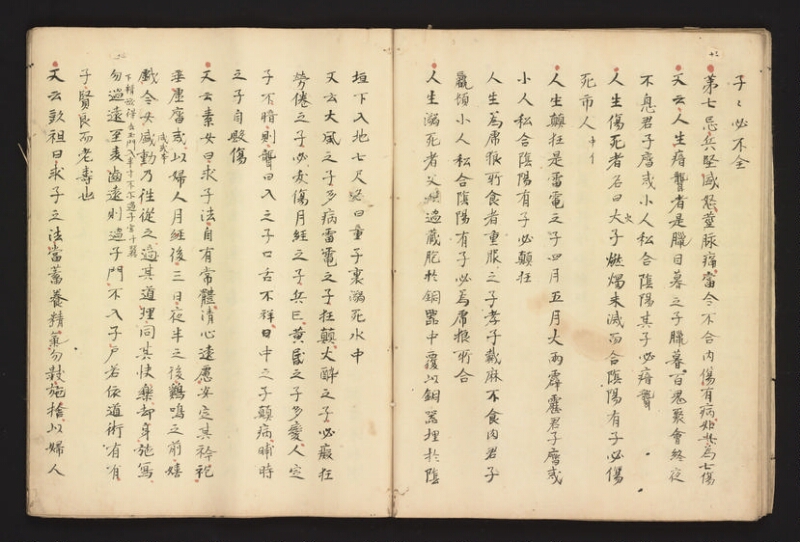 子〻必不全
第七忌兵堅盛怒莖脉痛當令不合内傷有病如此為七傷
又云人生瘖聾者是臘日暮之子臘暮百鬼聚會終夜
不息君子齋戒小人私合陰陽其子必瘖聾
人生傷死者名曰火子燃燭未滅而合陰陽有子必傷
死市人
人生顛狂是雷電之子四月五月大雨霹靂君子齋戒
小人私合陰陽有子必顛狂
人生為虎狼所食者重服之子孝子戴麻不食肉君子
羸頓小人私合陰陽有子必為虎狼所食
人生溺死者父母過藏胞於銅器中覆以銅器埋於陰
垣下入地七尺名曰童子裏溺死水中
又云大風之子多病雷電之子狂顛大醉之子必癡狂
勞倦之子必夭傷月經之子兵亡黄昏之子多變人定
子不暗則聾日入之子口舌不祥日中之子顛病晡時
之子自毀傷
又云素女曰求子法自有常體清心遠慮安定其衿袍
垂虛齋戒以婦人月經後三日夜半之後鷄鳴之前嬉
戲令女盛動乃往從之適其道理同其快樂却身施寫
勿過遠至麦齒遠則過子門不入子戸若依道術有有
子賢良而老壽也
又云彭祖曰求子之法當蓄養精氣勿數施捨以婦人